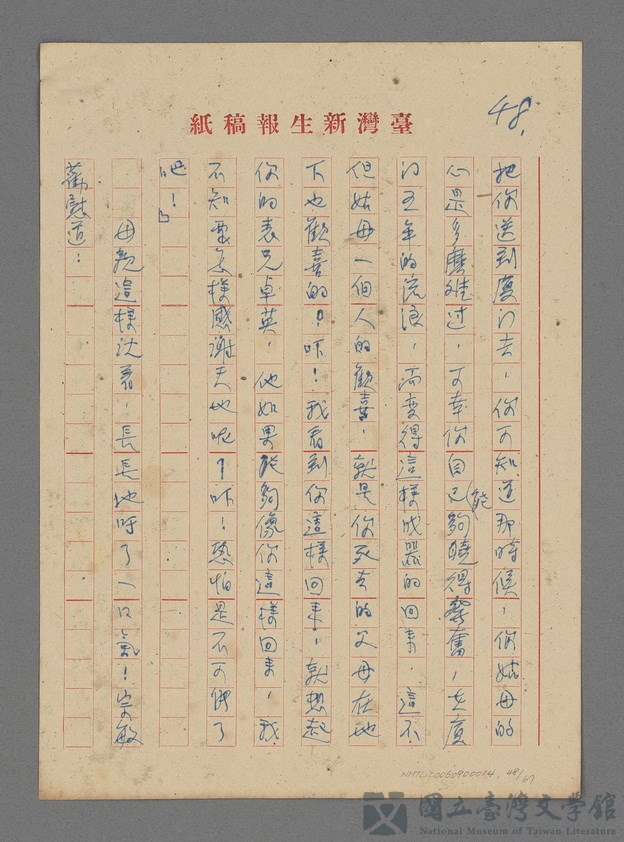 48.
臺灣新生報稿紙
把你送到廈门去，你可知道那時候，你姑母的
心是多麽难过，可幸你自己能夠曉得奮，在廈
门五年的流浪，而变得這樣成器的回來，這不
但姑母一個人的歡喜，就是你死去的父母在地
下也歡喜的！咔！我看到你這樣回來，就想起
你的表兄卓英，他如果能夠像你這樣回來，我
不知要怎樣感謝天地呢？咔！恐怕是不可能了
吧！』
母親這樣沈着，長長地吁了一口氣！宗敏
勸慰道：
NMTL20050900014 48/67
國立臺灣文學館
National Museum of Taiwan Literature